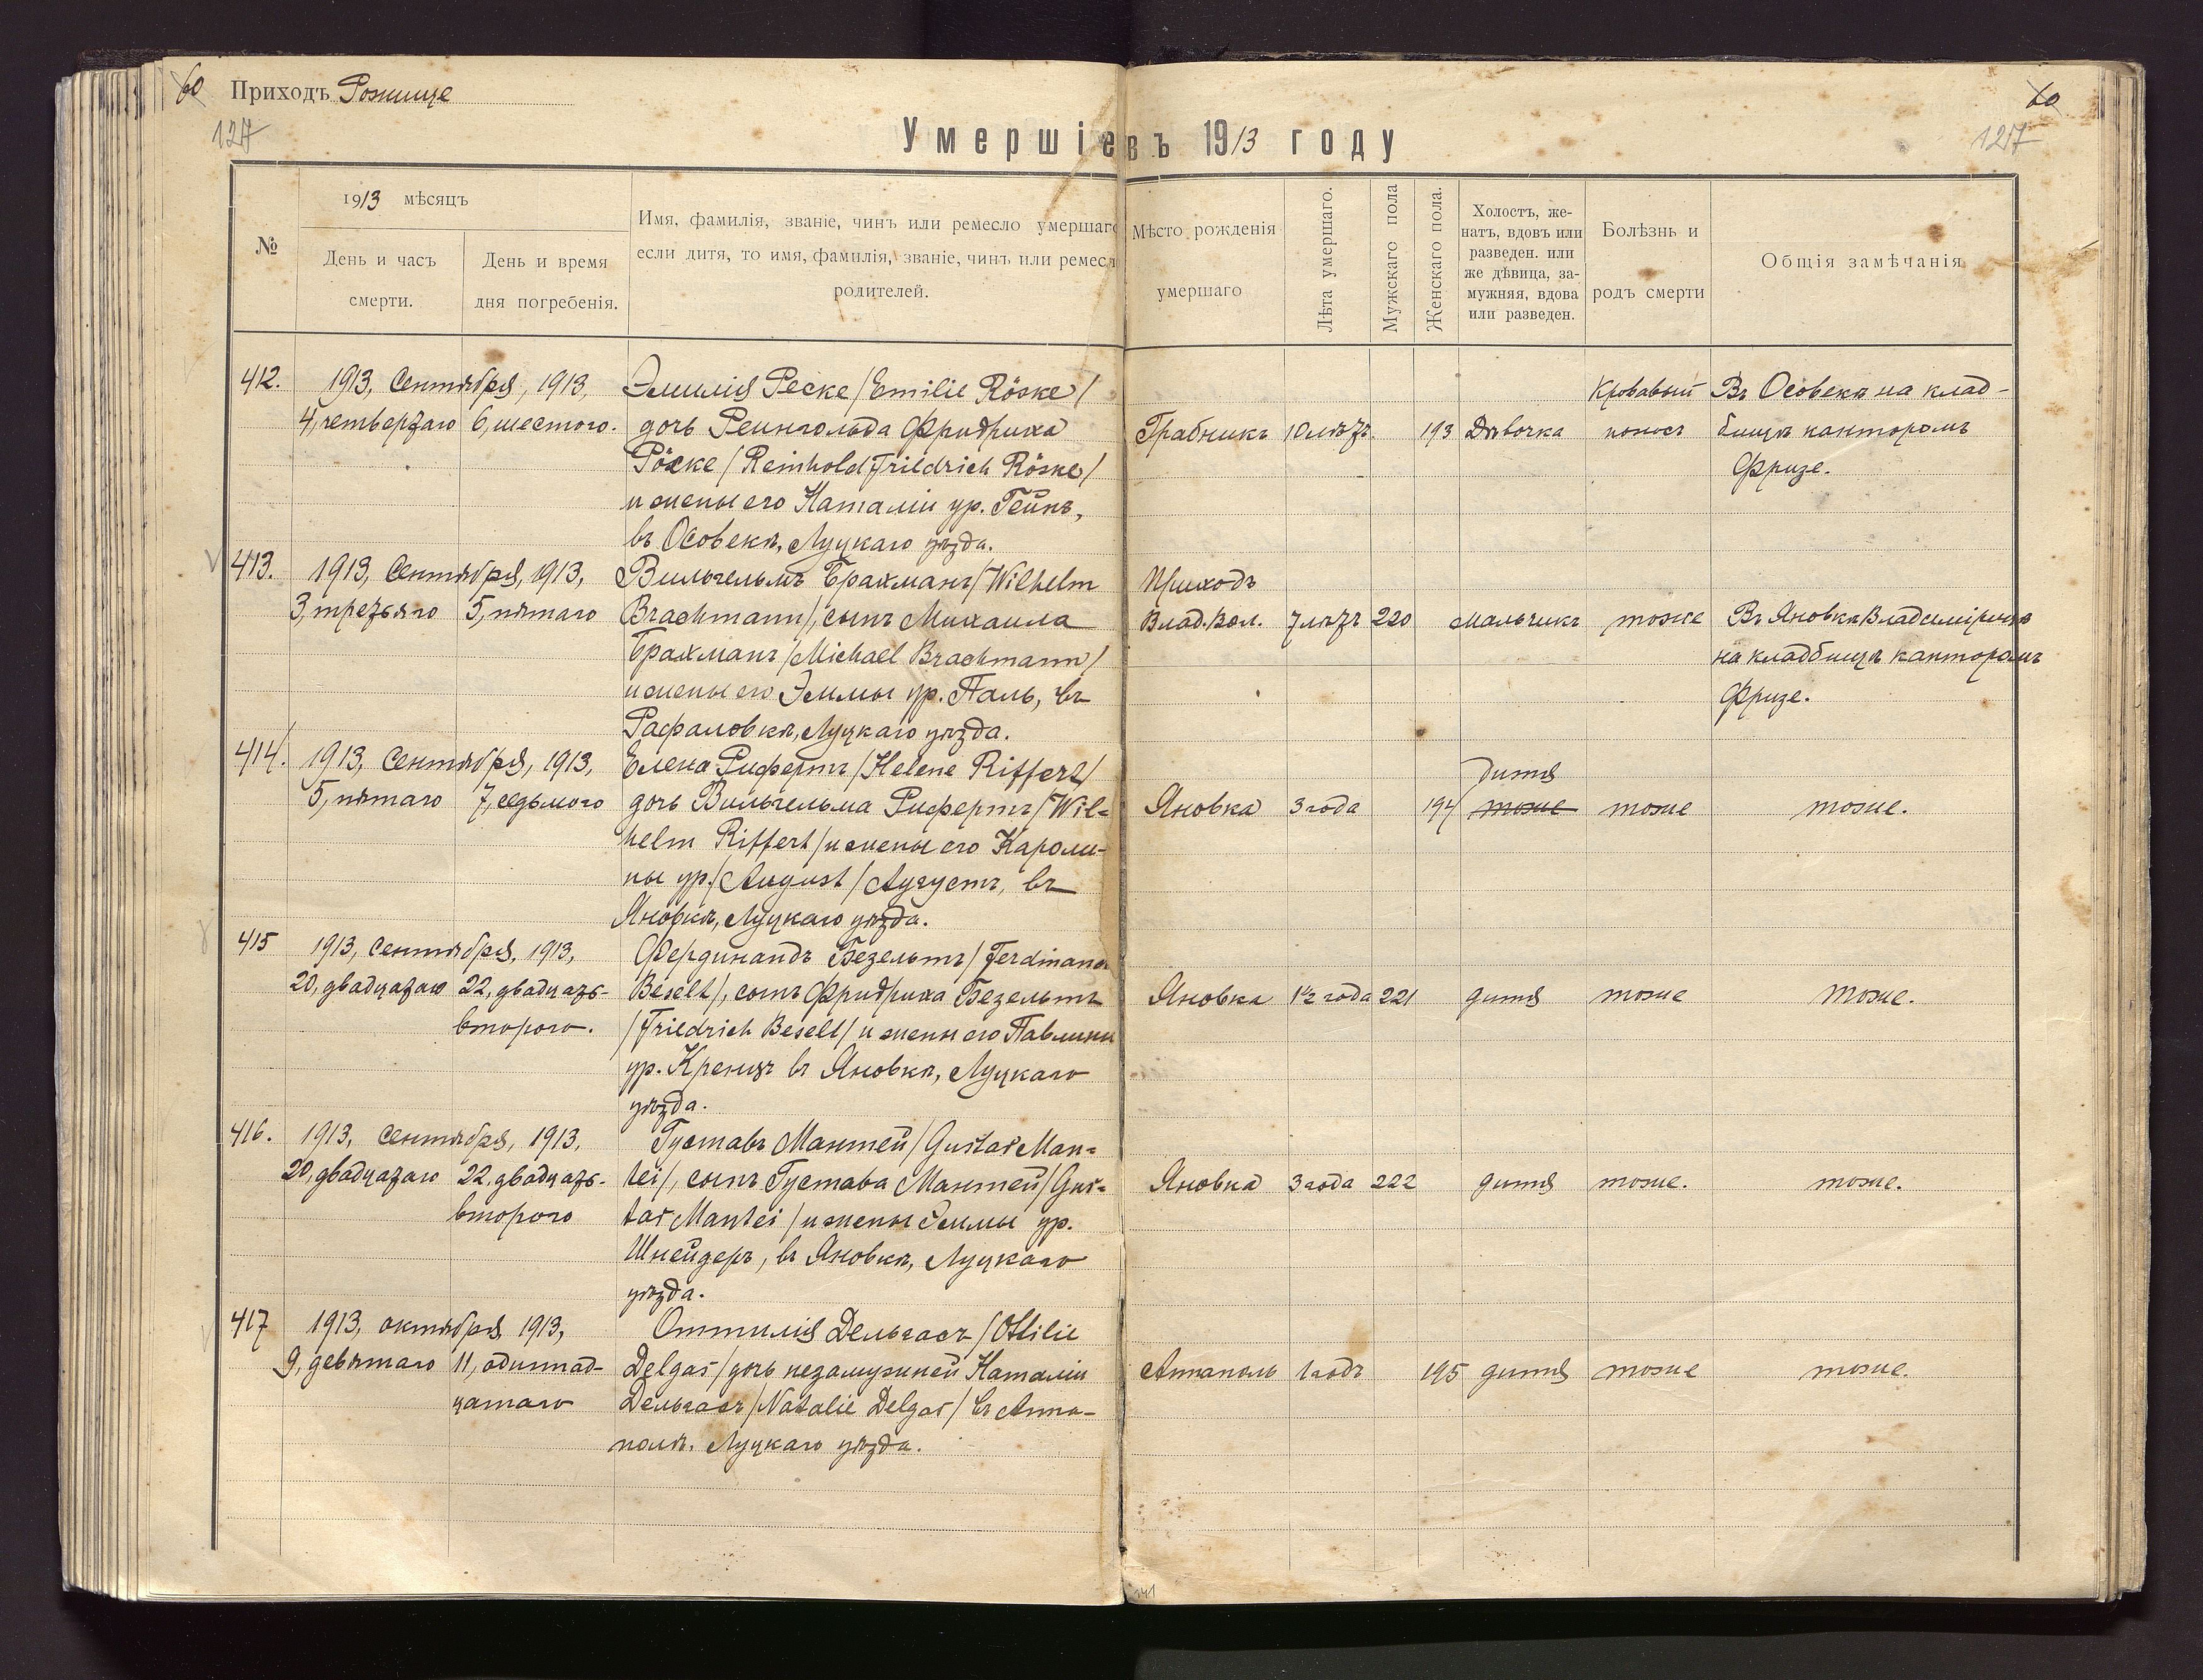 60 Приходъ Рожище
127
60
127
Умершіе въ 1913 году
№
1913 мѣсяцъ
День и часъ смерти.
День и время дня погребенія.
Имя, фамилія, званіе, чинъ или ремесло умершаго
если дитя, то имя, фамилія, званіе, чинъ или ремесл
родителей.
Мѣсто рожденія умершаго
Лѣта умершаго.
Мужскаго пола
Женскаго пола.
Холостъ, же-
натъ, вдовъ или
разведен. или
же дѣвица, за-
мужняя, вдова
или разведен.
Болѣзнь и родъ смерти
Общія замѣчанія
412. 1913, Сентября, 1913,
4, четвертаго 6, шестого.
Эмилія Реске /Emilie Röske/
дочь Реингольда Фридриха
Рöске /Reinhold Friedrich Röske/
и жены его Наталіи ур. Гейнъ,
въ Осовекѣ, Луцкаго уѣзда.
Грабникъ 10 лѣтъ. 193 Дѣвочка
Кровавый
поносъ
Въ Осовекѣ на клад-
бищѣ канторомъ
Фризе.
413. 1913, Сентября, 1913,
3, третьяго 5, пятаго
Вильгельмъ Брахманъ /Wilhelm
Brachmann/, сынъ Михаила
Брахманъ /Michael Brachmann/
и жены его Эммы ур. Паль, въ
Рафаловкѣ, Луцкаго уѣзда.
Приходъ
Влад. Вол. 7 лѣтъ 220 мальчикъ тоже
Въ Яновкѣ Владимірскѣ
на кладбищѣ канторомъ
Фризе.
414. 1913, Сентября, 1913,
5, пятаго 7, седьмого
Елена Рифертъ /Helene Riffert/
дочь Вильгельма Рифертъ /Wil-
helm Riffert/ и жены его Кароли-
ны ур. /August/ Аугустъ, въ
Яновкѣ, Луцкаго уѣзда.
дитя
Яновка 3 года 194 тоже тоже тоже.
415 1913, Сентября, 1913,
20, двадцатаго 22, двадцать-
второго.
Фердинандъ Безельтъ /Ferdinand
Beselt/, сынъ Фридриха Безельтъ
/Friedrich Beselt/ и жены его Павлины
ур. Кренцъ въ Яновкѣ, Луцкаго
уѣзда.
Яновка 1½ года 221 дитя тоже тоже.
416. 1913, Сентября, 1913,
20, двадцатаго 22, двадцать-
второго
Густавъ Мантей /Gustav Man-
tei/, сынъ Густава Мантей /Gus-
tav Mantei/ и жены Эммы ур.
Шнейдеръ, въ Яновкѣ, Луцкаго
уѣзда.
Яновка 3 года 222 дитя тоже. тоже.
417 1913, октября 1913,
9, девятаго 11, одиннад-
цатаго
Оттилія Дельгасъ /Ottilie
Delgas/ дочь незамужней Наталіи
Дельгасъ /Natalie Delgas/ въ Анна-
полѣ. Луцкаго уѣзда.
Аннаполь 1 годъ 195 дитя тоже тоже.